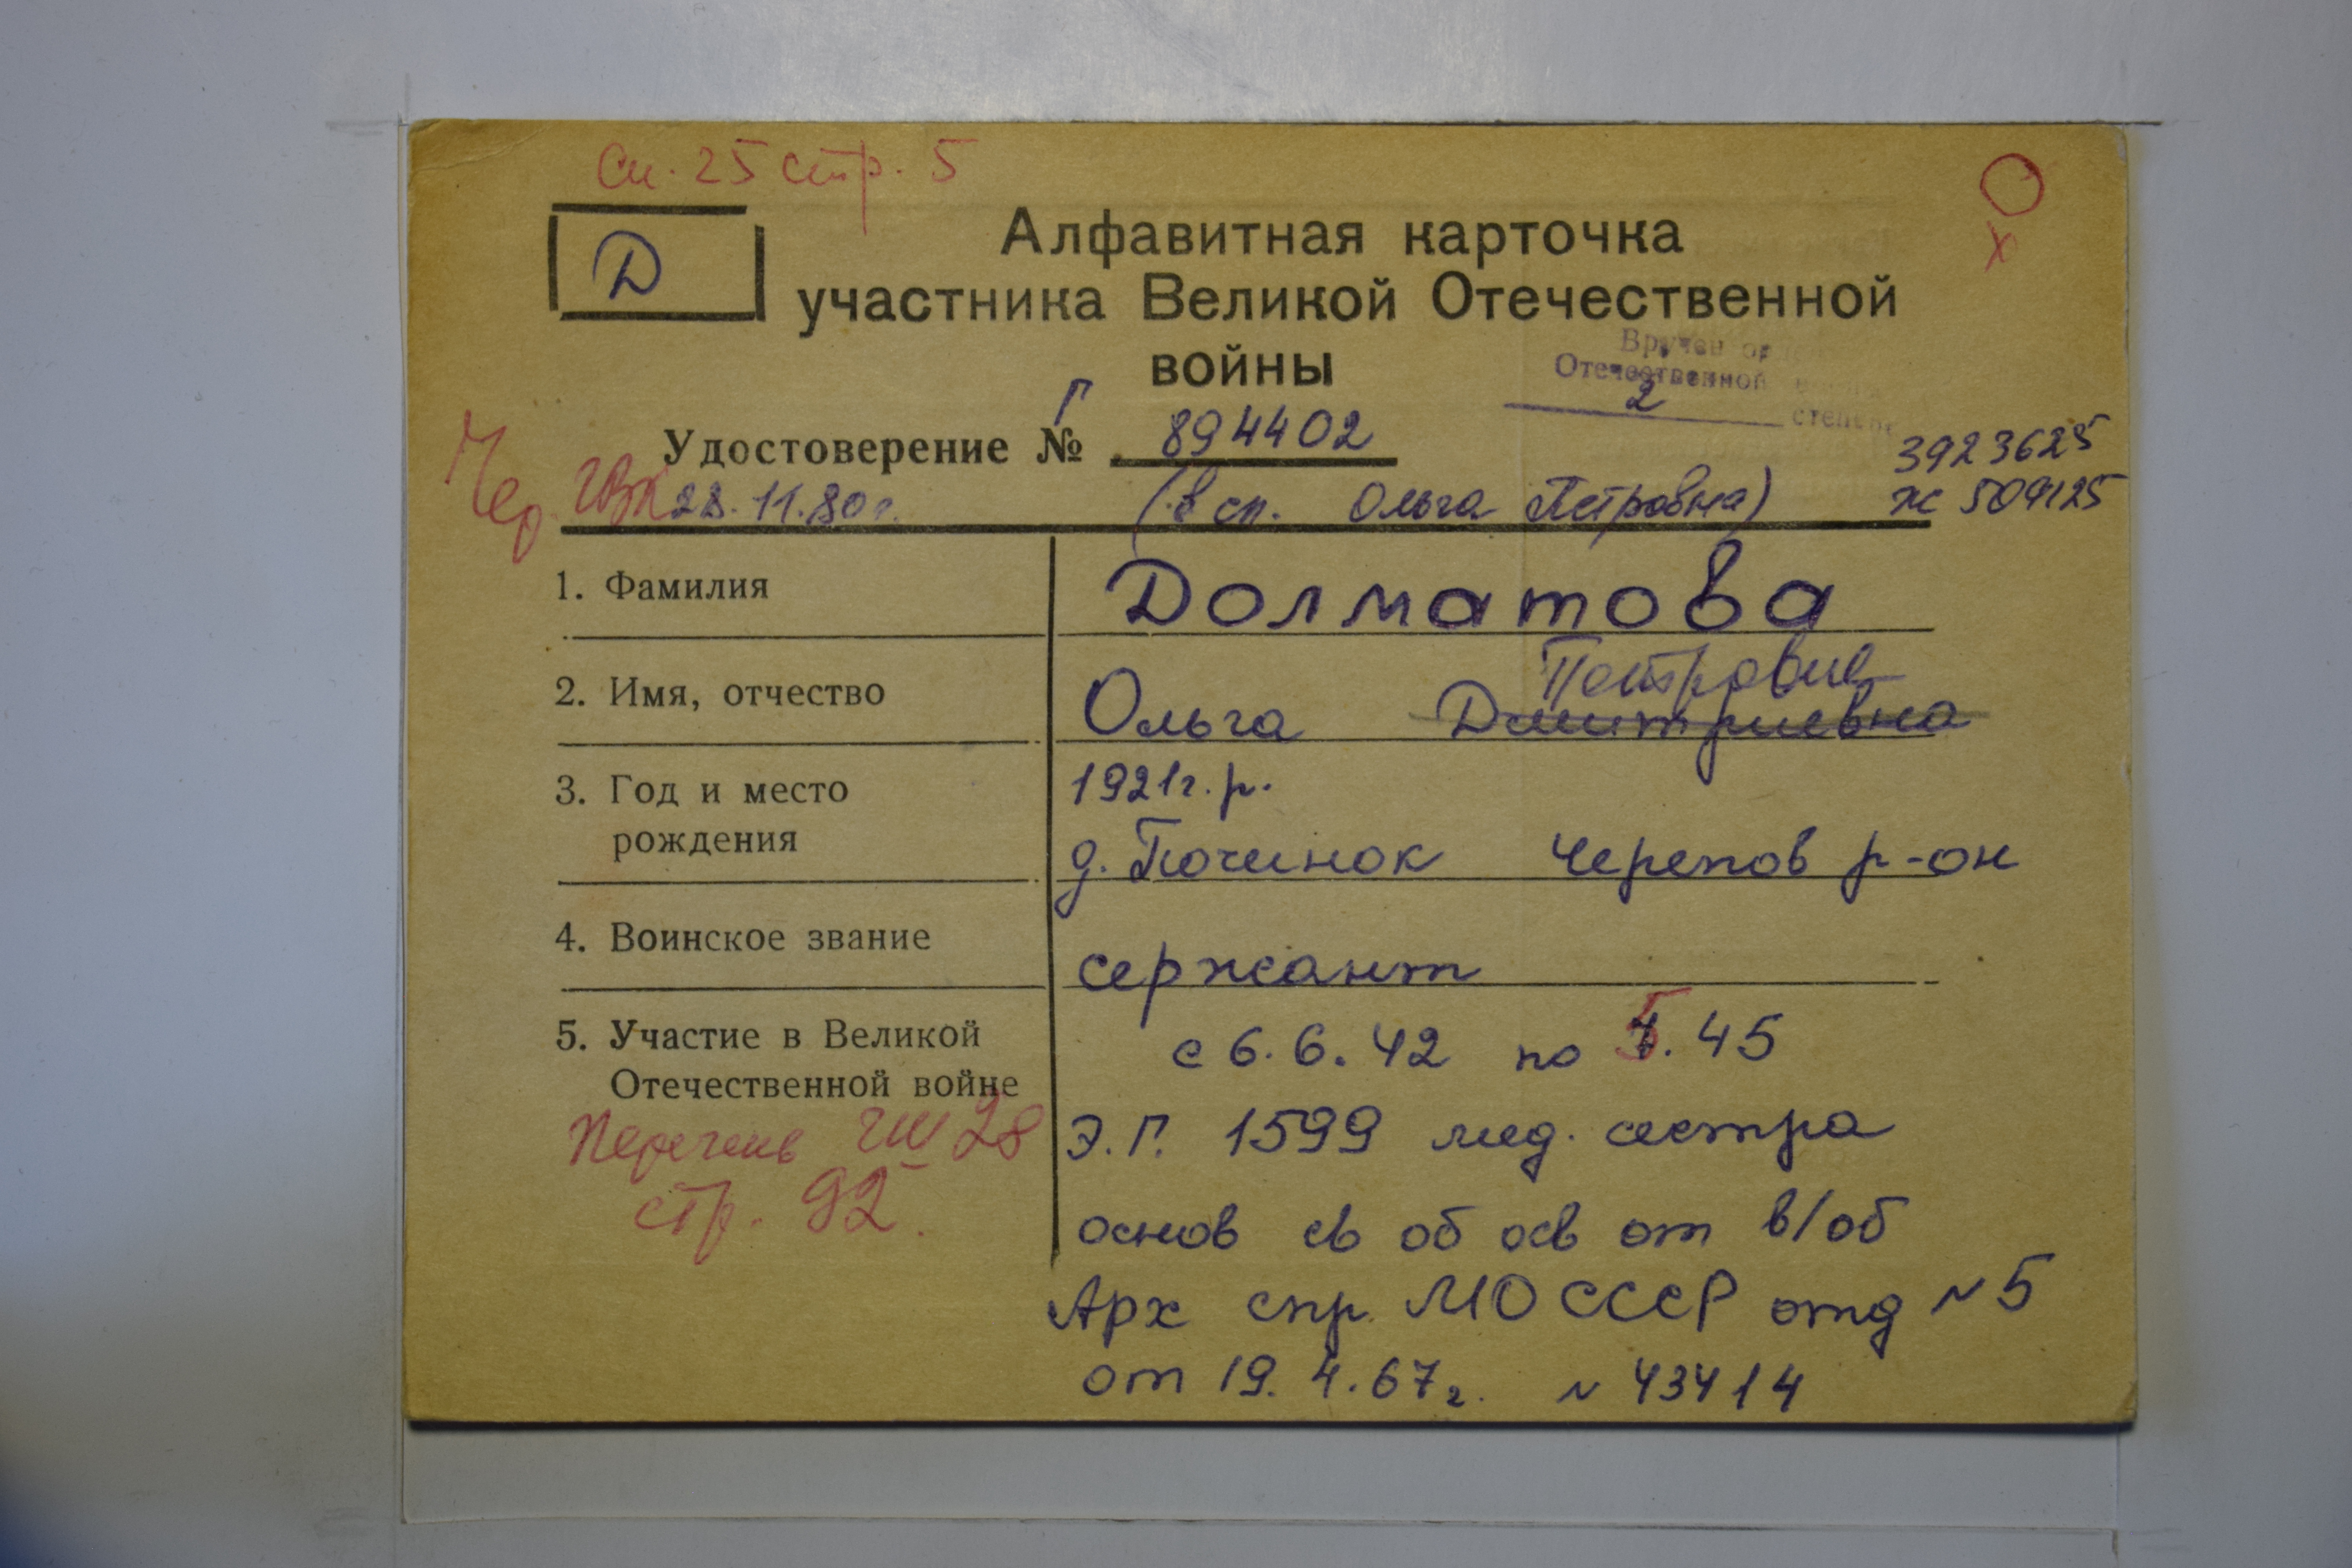 Сп. 25 стр. 5
Д
Алфавитная карточка
участника Великой Отечественной
войны
Вручен
Отечественной
2 степени
Удостоверение № Г 894402
3923625
Чер. ГВК 28.11.80г. (в сп. Ольга Петровна) Ж 509125
1. Фамилия Долматова
Петровна
2. Имя, отчество Ольга Дмитриевна
3. Год и место 1921г.р.
рождения д. Починок Черепов р-он
4. Воинское звание сержант
5. Участие в Великой с 6.6.42 по 5.45
Отечественной войне
Перечень ГШ 28 Э.Г. 1599 мед. сестра
стр. 92. основ св об осв от в/об
Арх спр. МО СССР отд N 5
от 19.4.67г. N 43414